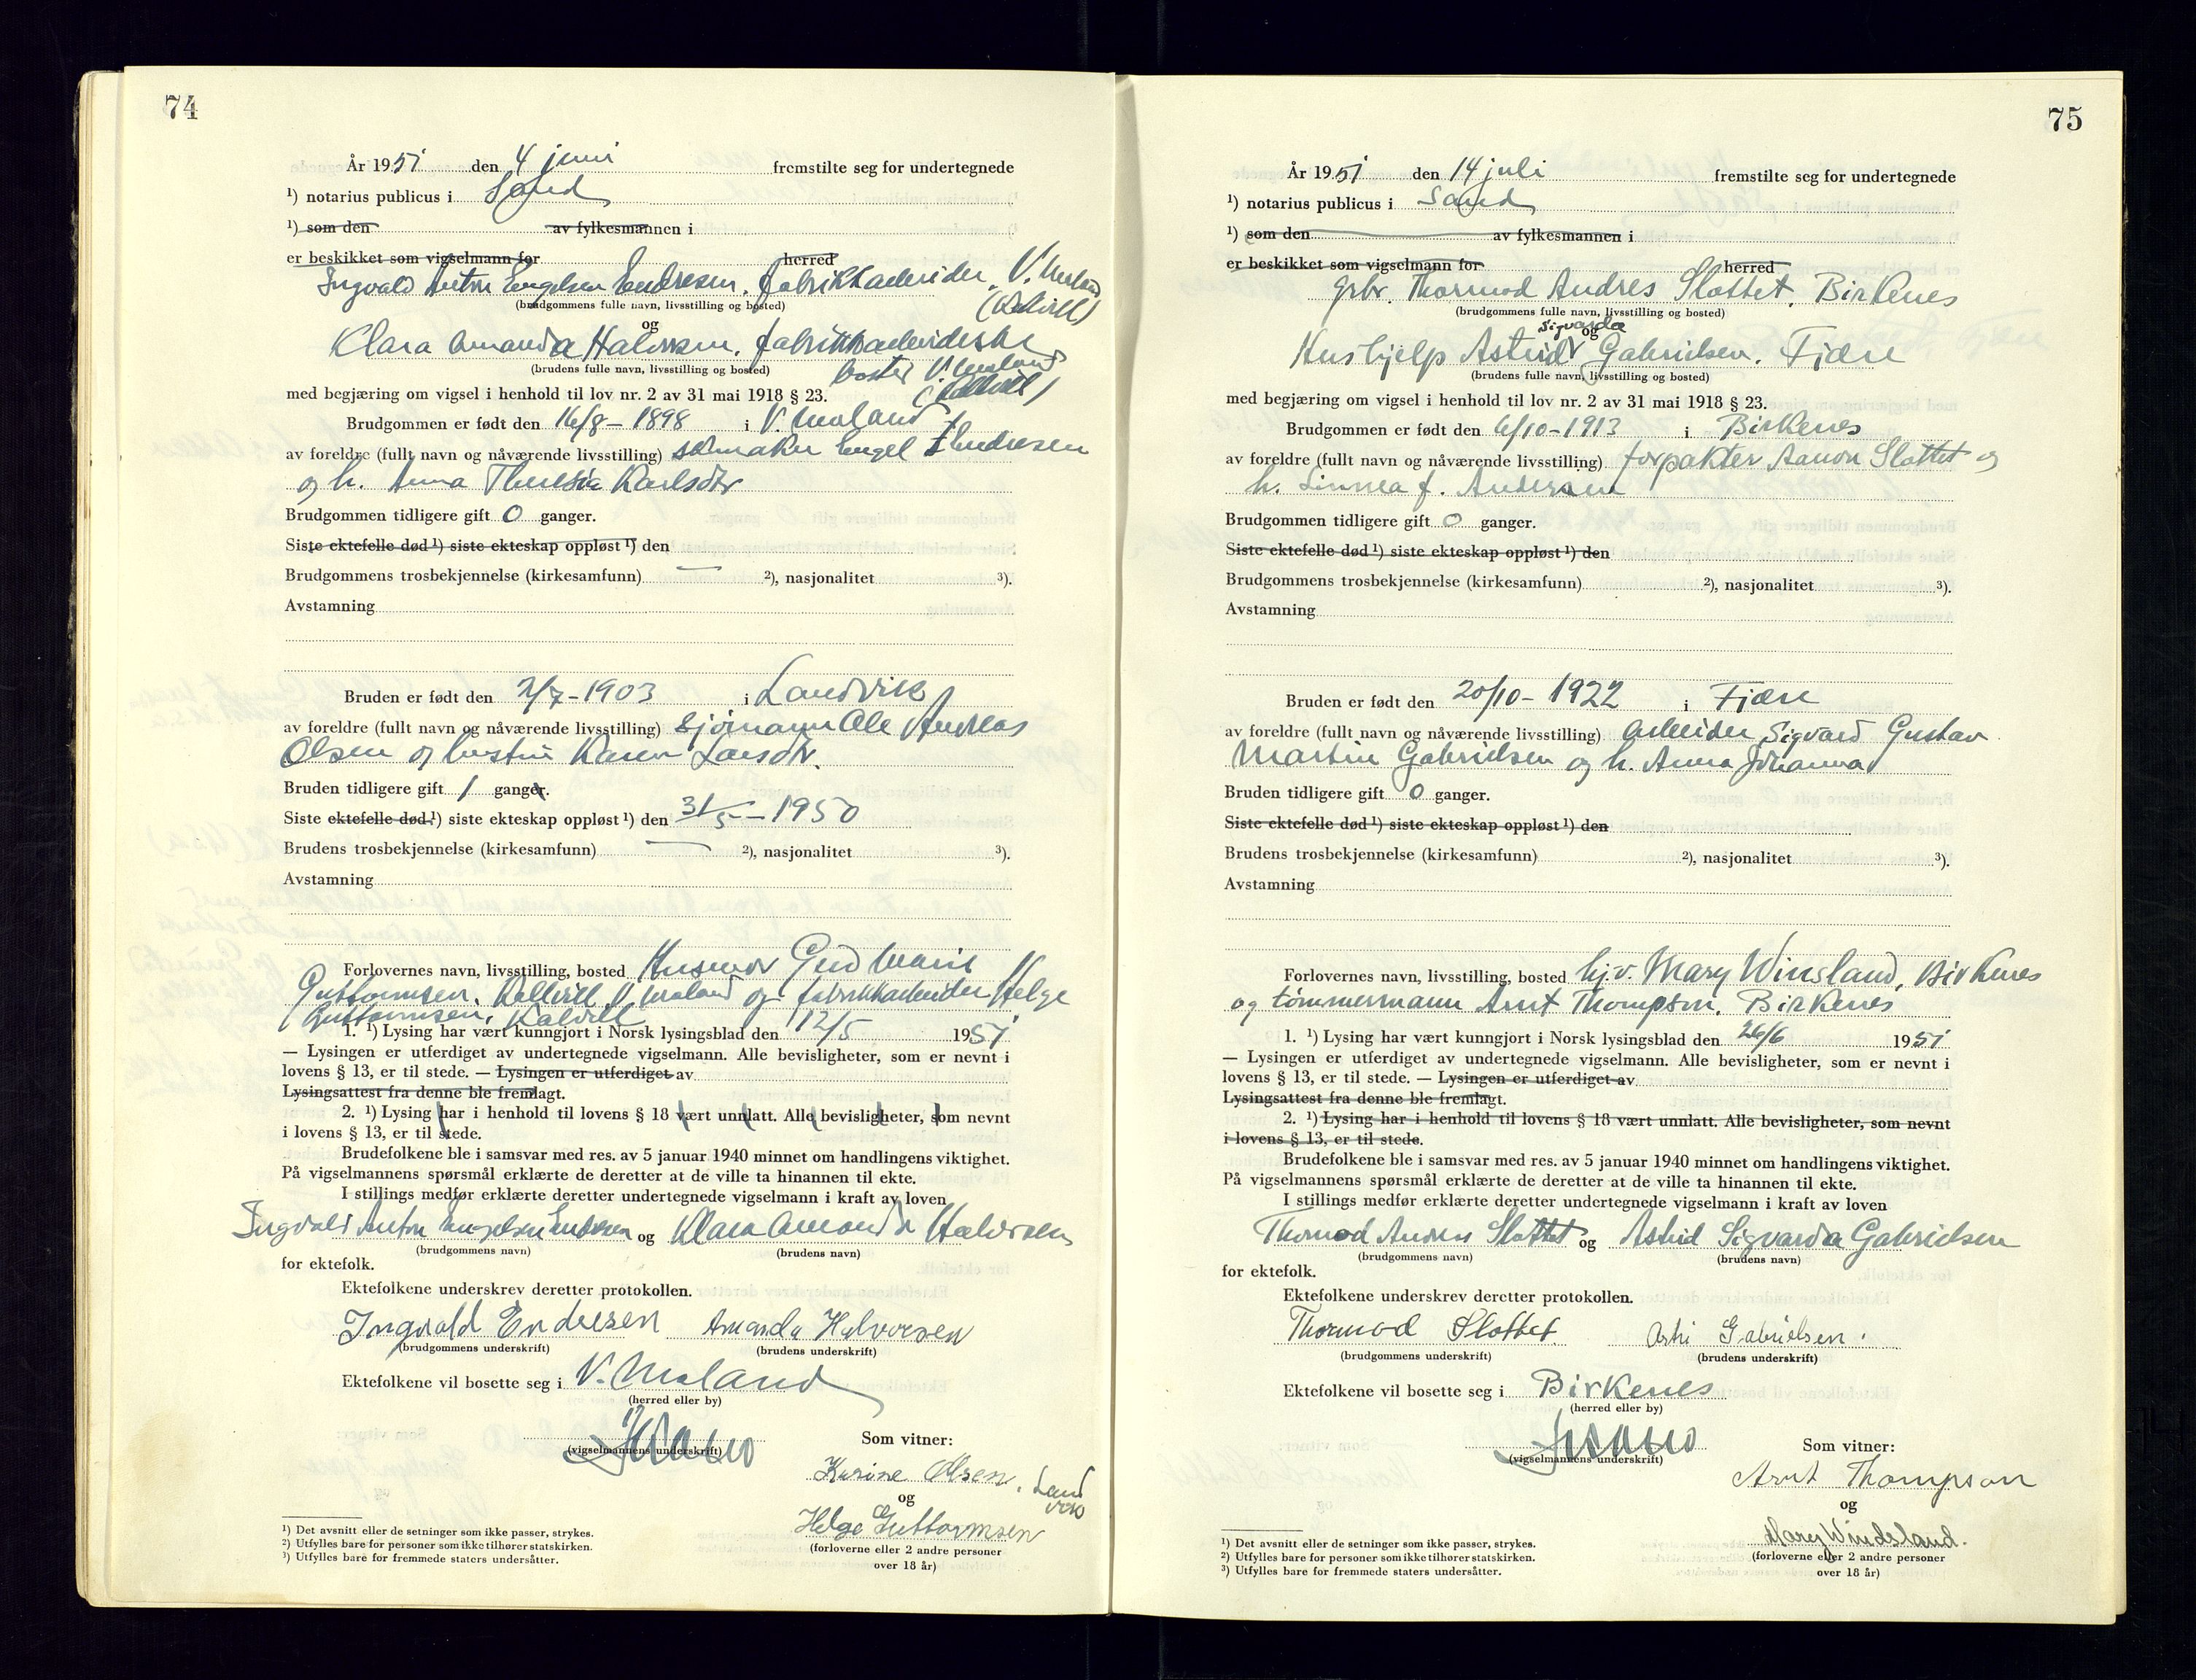 74
År 1951 den 4 juni fremstilte seg for undertegnede
¹) notarius publicus i Sand
¹) som den av fylkesmannen i
er beskikket som vigselmann for herred
Ingvald Anton Engelsen Endresen. fabrikkarbeider, V. Moland
(brudgommens fulle navn, livsstilling og bosted)
og
Klara Amanda Halvorsen. fabrikkarbeiderske
(brudens fulle navn, livsstilling og bosted) bosted V. Moland
med begjæring om vigsel i henhold til lov nr. 2 av 31 mai 1918 § 23.
Brudgommen er født den 16/8 - 1898 i V. Moland
av foreldre (fullt navn og nåværende livsstilling) skomaker Engel Endresen
og h. Anna Theresia Karlsdtr
Brudgommen tidligere gift 0 ganger.
Siste ektefelle død ¹) siste ekteskap oppløst ¹) den
Brudgommens trosbekjennelse (kirkesamfunn) — ²), nasjonalitet ³).
Avstamning
Bruden er født den 2/7 - 1903 i Landvik
av foreldre (fullt navn og nåværende livsstilling) sjømann Ole Andreas
Olsen og hustru Karen Larsdtr.
Bruden tidligere gift 1 ganger.
Siste ektefelle død ¹) siste ekteskap oppløst ¹) den 31/5 - 1950
Brudens trosbekjennelse (kirkesamfunn) — ²), nasjonalitet ³).
Avstamning
Forlovernes navn, livsstilling, bosted Husmor Gud Marie
Guttormsen, Kallvill V. Moland og fabrikkarbeider Helge
Guttormsen, Kalvill
1. ¹) Lysing har vært kunngjort i Norsk lysingsblad den 12/5 1951
— Lysingen er utferdiget av undertegnede vigselmann. Alle bevisligheter, som er nevnt i
lovens § 13, er til stede. — Lysingen er utferdiget av
Lysingsattest fra denne ble fremlagt.
2. ¹) Lysing har i henhold til lovens § 18 vært unnlatt. Alle bevisligheter, som nevnt
i lovens § 13, er til stede.
Brudefolkene ble i samsvar med res. av 5 januar 1940 minnet om handlingens viktighet.
På vigselmannens spørsmål erklærte de deretter at de ville ta hinannen til ekte.
I stillings medfør erklærte deretter undertegnede vigselmann i kraft av loven
Ingvald Anton Engelsen Endresen og Klara Amanda Halvorsen
(brudgommens navn) (brudens navn)
for ektefolk.
Ektefolkene underskrev deretter protokollen.
Ingvald Endresen Amanda Halvorsen
(brudgommens underskrift) (brudens underskrift)
Ektefolkene vil bosette seg i V. Moland
(herred eller by)
(vigselmannens underskrift)
Som vitner:
Karine Olsen, Landvik
og
Helge Guttormsen
(forloverne eller 2 andre personer
over 18 år)
¹) Det avsnitt eller de setninger som ikke passer, strykes.
²) Utfylles bare for personer som ikke tilhører statskirken.
³) Utfylles bare for fremmede staters undersåtter.
75
År 1951 den 14 juli fremstilte seg for undertegnede
¹) notarius publicus i Sand
¹) som den av fylkesmannen i
er beskikket som vigselmann for herred
Grbr. Thormod Andres Slottet. Birkenes
(brudgommens fulle navn, livsstilling og bosted)
og
Hushjelp Astrid Sigvarda Gabrielsen. Fjære
(brudens fulle navn, livsstilling og bosted)
med begjæring om vigsel i henhold til lov nr. 2 av 31 mai 1918 § 23.
Brudgommen er født den 6/10-1913 i Birkenes
av foreldre (fullt navn og nåværende livsstilling) forpakter Aanon Slottet og
h. Linnea f. Andersen
Brudgommen tidligere gift 0 ganger.
Siste ektefelle død ¹) siste ekteskap oppløst ¹) den
Brudgommens trosbekjennelse (kirkesamfunn) ²), nasjonalitet ³).
Avstamning
Bruden er født den 20/10 - 1922 i Fjære
av foreldre (fullt navn og nåværende livsstilling) arbeider Sigvard Gustav
Martin Gabrielsen og h. Anna Johanna
Bruden tidligere gift 0 ganger.
Siste ektefelle død ¹) siste ekteskap oppløst ¹) den
Brudens trosbekjennelse (kirkesamfunn) ²), nasjonalitet ³).
Avstamning
Forlovernes navn, livsstilling, bosted hjv. Mary Winsland, Birkenes
og tømmermann Arnt Thompson. Birkenes
1. ¹) Lysing har vært kunngjort i Norsk lysingsblad den 26/6 1951
— Lysingen er utferdiget av undertegnede vigselmann. Alle bevisligheter, som er nevnt i
lovens § 13, er til stede. — Lysingen er utferdiget av
Lysingsattest fra denne ble fremlagt.
2. ¹) Lysing har i henhold til lovens § 18 vært unnlatt. Alle bevisligheter, som nevnt
i lovens § 13, er til stede.
Brudefolkene ble i samsvar med res. av 5 januar 1940 minnet om handlingens viktighet.
På vigselmannens spørsmål erklærte de deretter at de ville ta hinannen til ekte.
I stillings medfør erklærte deretter undertegnede vigselmann i kraft av loven
Thormod Andres Slottet og Astrid Sigvarda Gabrielsen
(brudgommens navn) (brudens navn)
for ektefolk.
Ektefolkene underskrev deretter protokollen.
Thormod Slottet Astri Gabrielsen.
(brudgommens underskrift) (brudens underskrift)
Ektefolkene vil bosette seg i Birkenes
(herred eller by)
(vigselmannens underskrift)
Som vitner:
Arnt Thompson
og
Mary Windsland.
(forloverne eller 2 andre personer
over 18 år)
¹) Det avsnitt eller de setninger som ikke passer, strykes.
²) Utfylles bare for personer som ikke tilhører statskirken.
³) Utfylles bare for fremmede staters undersåtter.